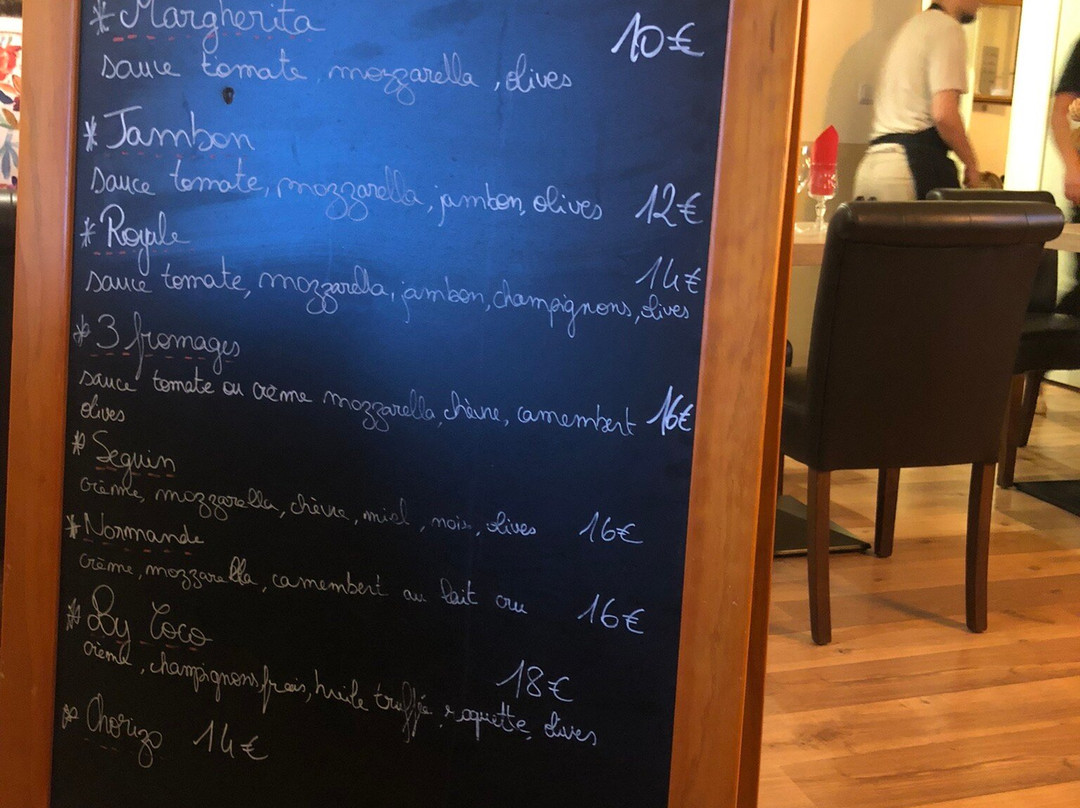 * Margherita
10€
sauce tomate, mozzarella, olives
* Jambon
sauce tomate, mozzarella, jambon, olives 12€
* Royale
14€
sauce tomate, mozzarella, jambon, champignons, olives
* 3 fromages
sauce tomate ou crème mozzarella, chèvre, camembert 16€
olives
* Seguin
crème, mozzarella, chèvre, miel, noix, olives 16€
* Normande
crème, mozzarella, camembert au lait cru 16€
* By Coco
18€
crème, champignons frais, huile truffée, roquette, olives
* Chorizo 14€